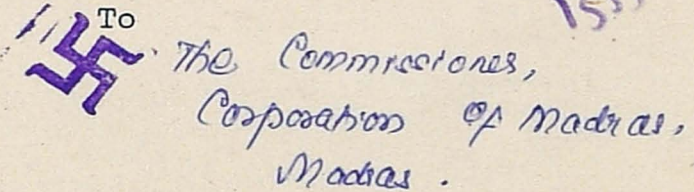 To
The Commissioner,
Corporation of Madras,
Madras.